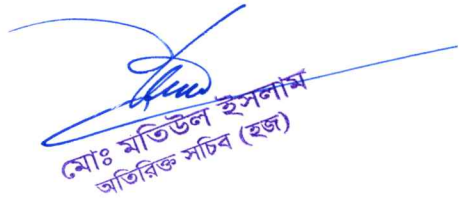 মোঃ মতিউল ইসলাম
অতিরিক্ত সচিব (হজ)